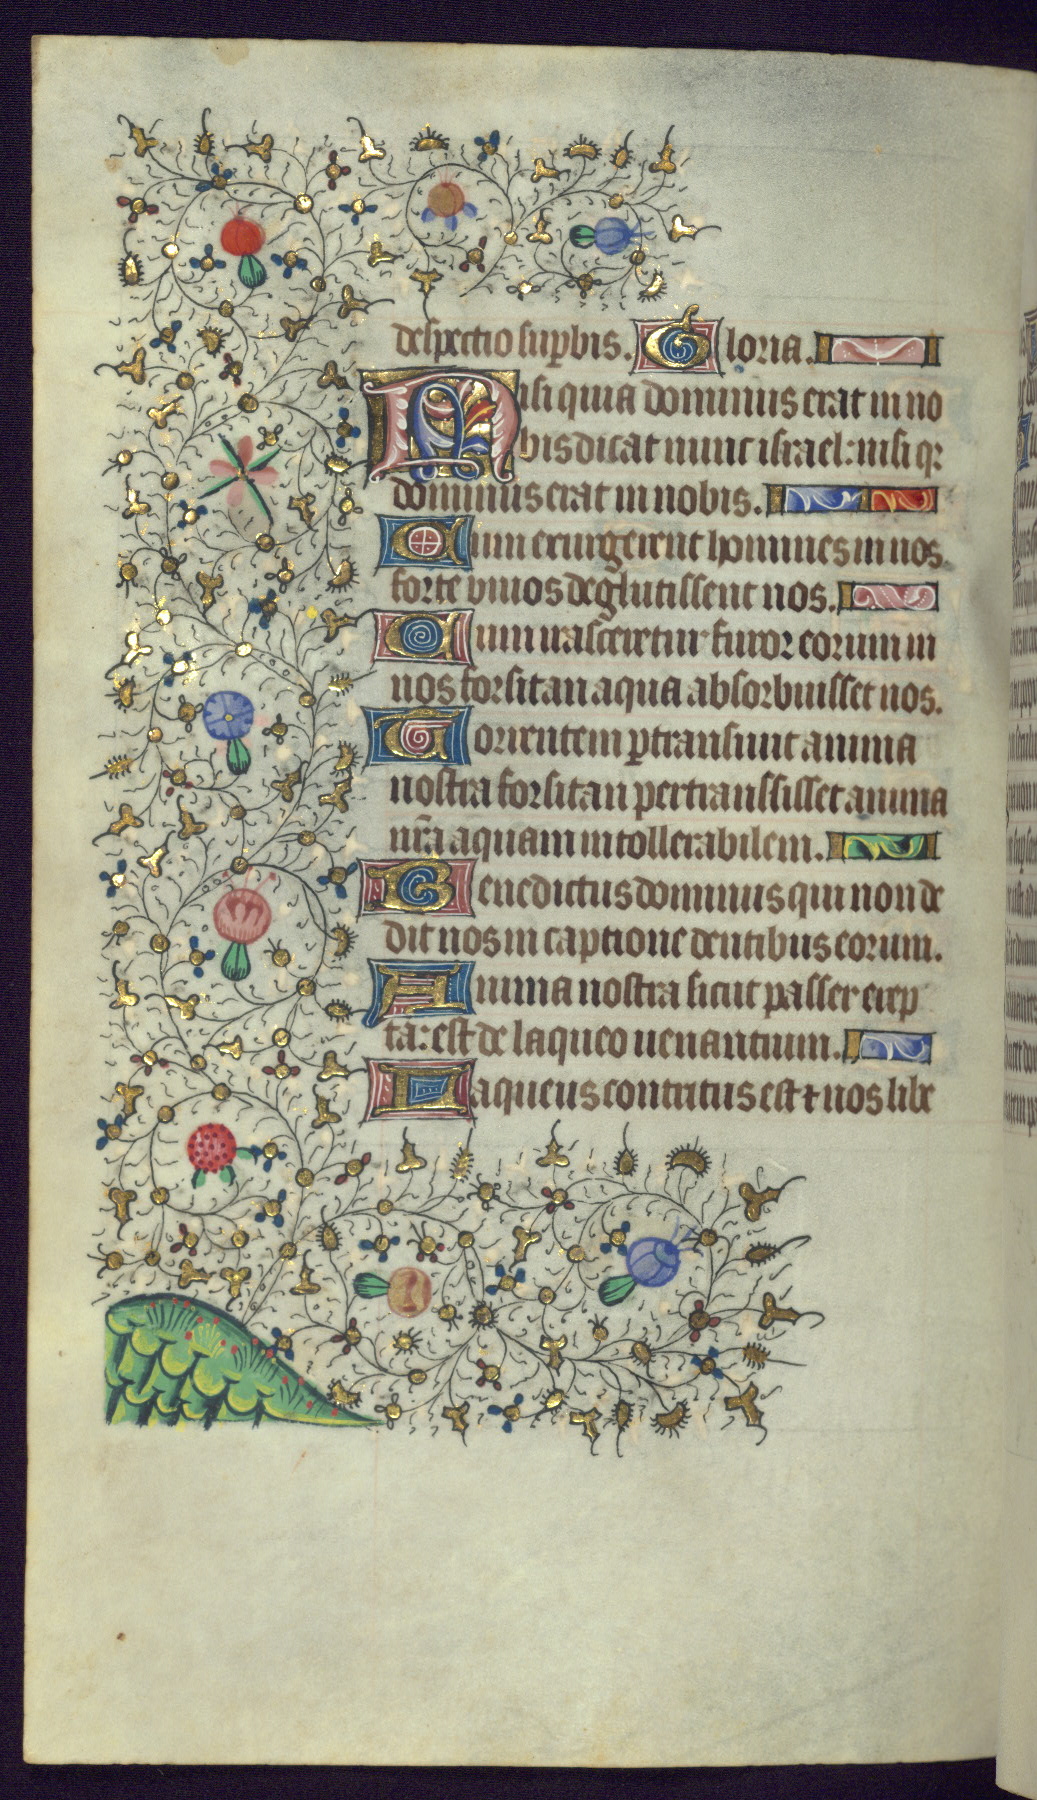 despectio supbis. Gloria.
Nisi quia dominus erat in no
bis dicat nunc israel: nisi qr
dominus erat in nobis.
Cum exurgerent homines in nos
forte vivos deglutissent nos.
Cum irasceretur furor eorum in
nos forsitan aqua absorbuisset nos.
Torrentem ptransivit anima
nostra forsitan pertranssisset anima
nr̃a aquam intollerabilem.
Benedictus dominus qui non de
dit nos in captione dentibus eorum.
Anima nostra sicut passer erep
ta: est de laqueo uenantium.
Laqueus contritus est ⁊ nos libe